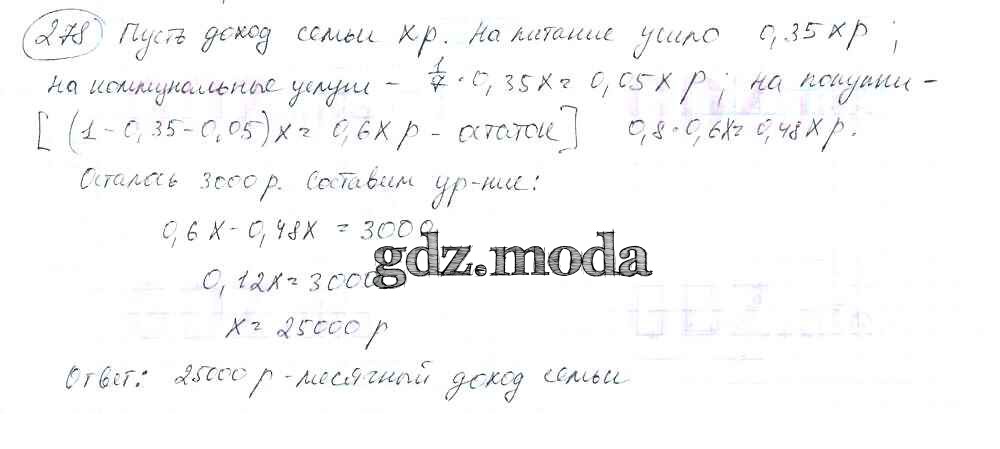 278 Пусть доход семьи x р. На питание ушло 0,35x р;
на коммунальные услуги - 1/7 · 0,35x = 0,05x р; на покупки -
[(1-0,35-0,05)x = 0,6x р - остаток] 0,8·0,6x = 0,48x р.
Осталось 3000 р. Составим ур-ние:
0,6x - 0,48x = 3000
gdz.moda
0,12x = 3000
x = 25000 р
Ответ: 25000 р - месячный доход семьи